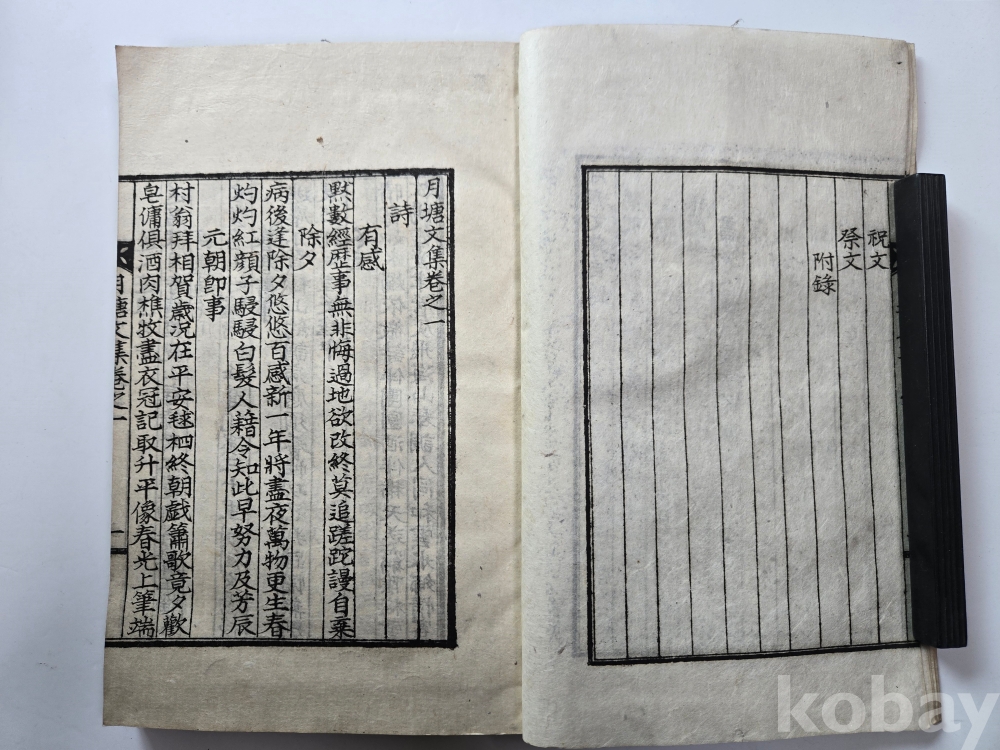 祝文
祭文
附錄
月塘文集卷之一
詩
有感
默數經歷事無非悔過地欲改終莫追蹉跎謾自棄
除夕
病後逢除夕悠悠百感新一年將盡夜萬物更生春
灼灼紅顔子駸駸白髮人藉令知此早努力及芳辰
元朝卽事
村翁拜相賀歲況在平安毬柶終朝戲簫歌竟夕歡
皂傭俱酒肉樵牧盡衣冠記取升平像春光上筆端
月塘文集卷之一
一
kobay